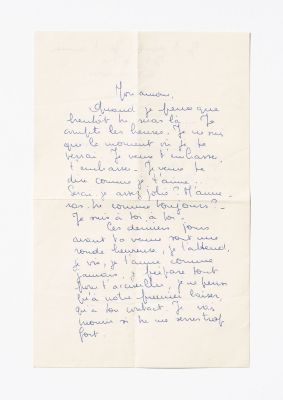 Mon amour,
Quand je pense que
bientôt tu seras là. Je
compte les heures. Je ne vis
que le moment où je te
verrai. Je veux t'embrasser,
t'embrasser. Je veux te
dire comme je t'aime.
Serai je assez jolie? M'aime-
ras-tu comme toujours?
Je suis à toi à toi.
Ces derniers jours
avant ta venue sont une
ronde heureuse, je t'attend,
je vis, je t'aime comme
jamais, je prépare tout
pour t'accueillir, je ne pense
qu'à notre premier baiser,
qu'à ton contact. Je vais
mourir si tu me serres trop
fort.